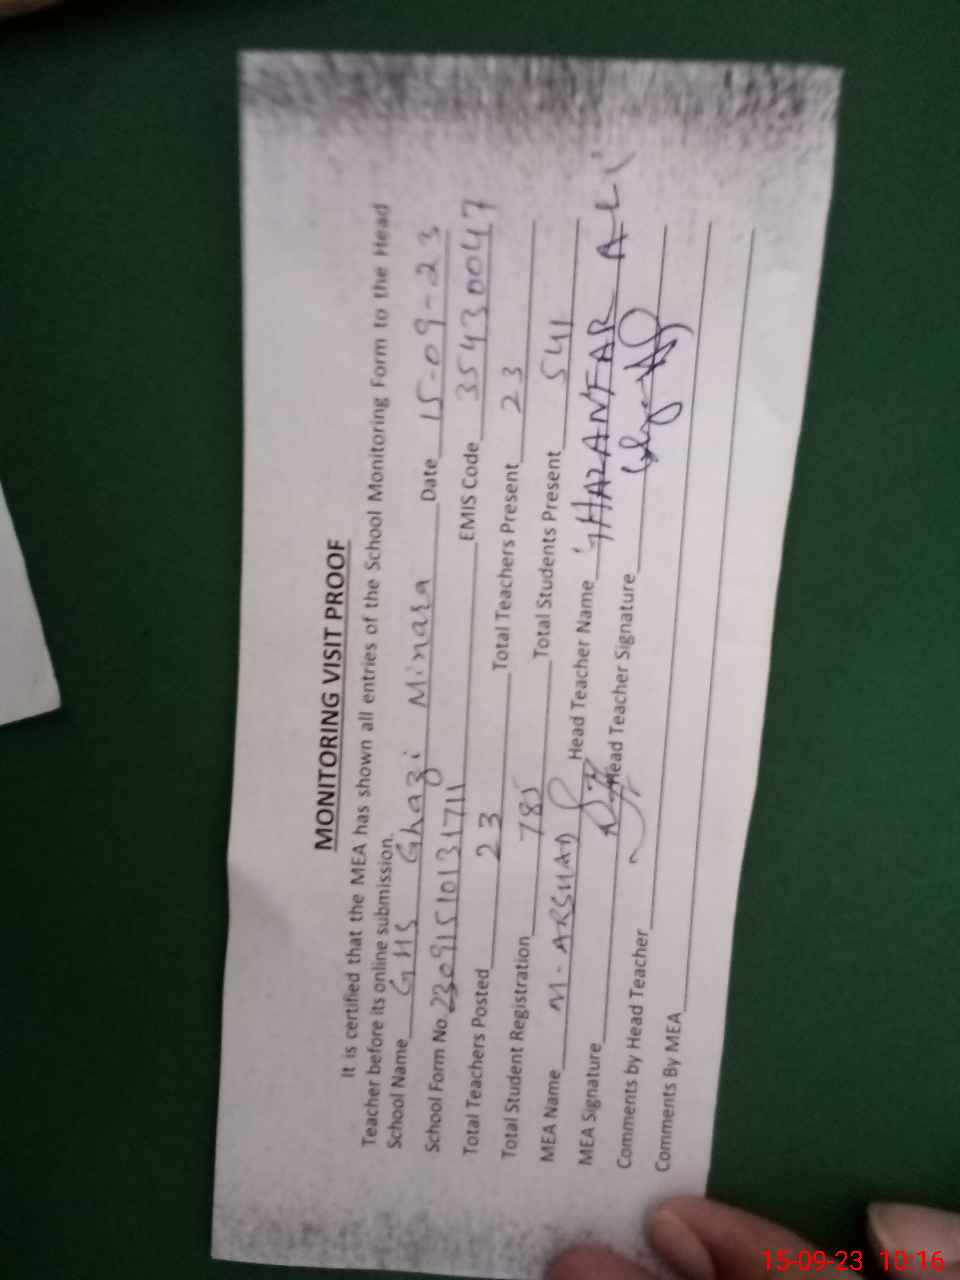 MONITORING VISIT PROOF
It is certified that the MEA has shown all entries of the School Monitoring Form to the Head
Teacher before its online submission.
School Name GHS Ghazi Minara Date 15-09-23
School Form No. 23091510131711 EMIS Code 35430047
Total Teachers Posted 23 Total Teachers Present 23
Total Student Registration 785 Total Students Present 541
MEA Name M-ARSHAD Head Teacher Name GHAZANFAR ALI
MEA Signature Head Teacher Signature
Comments by Head Teacher
Comments By MEA
15-09-23 10:16